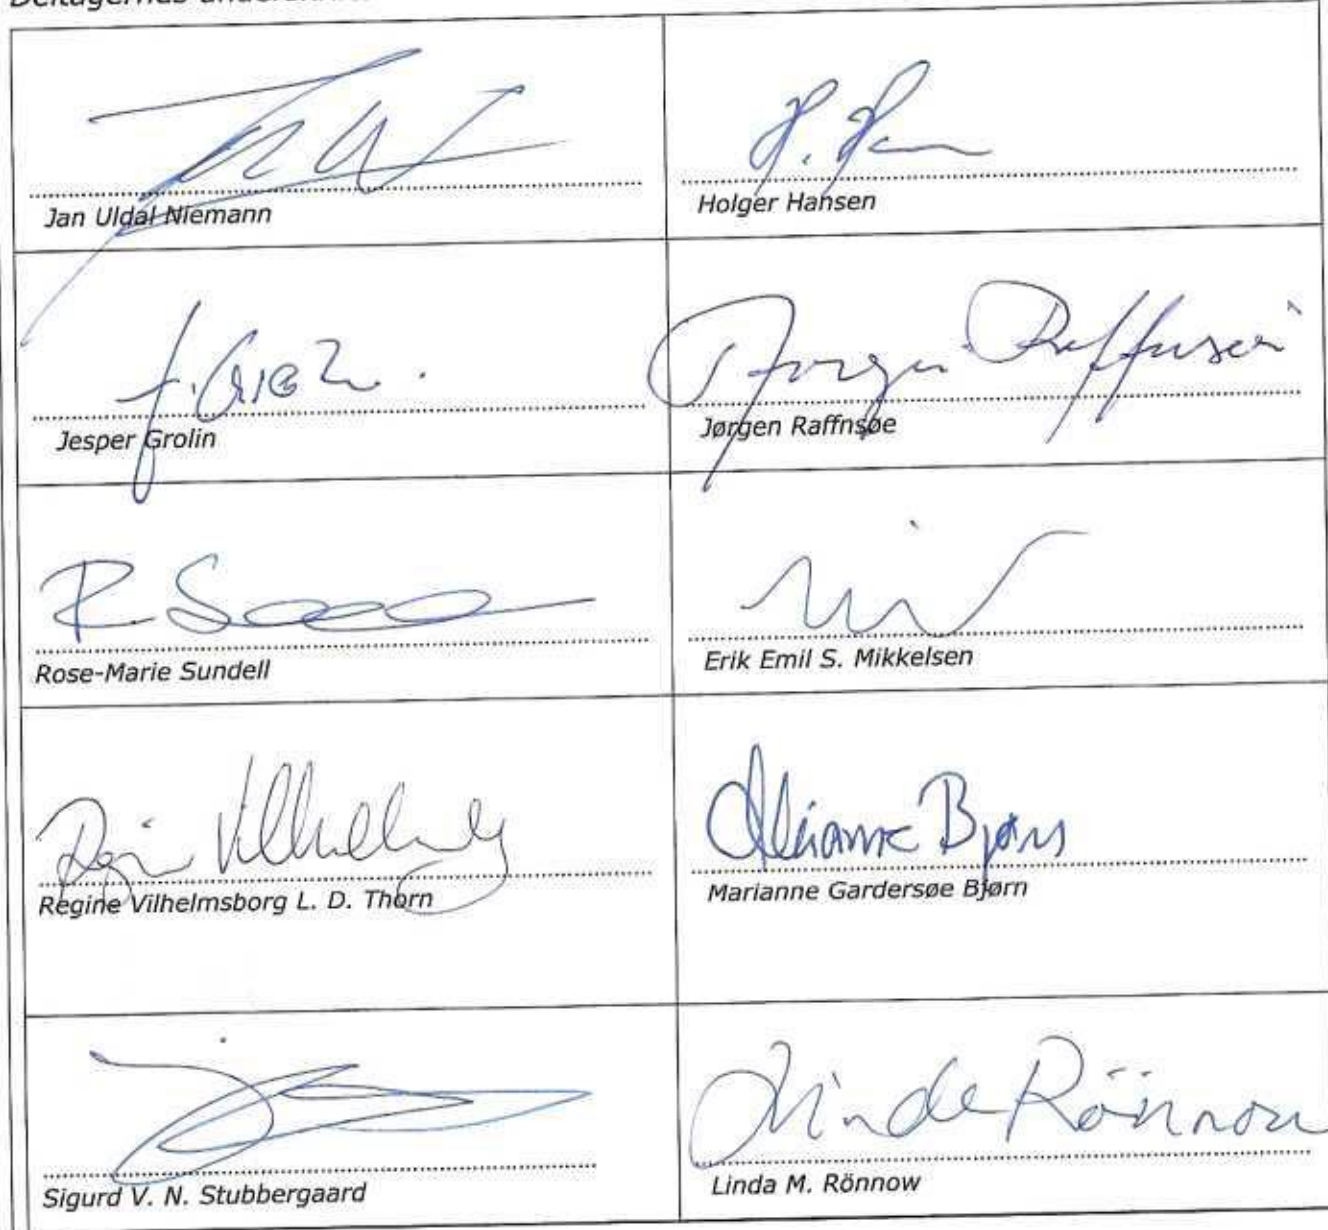 Jan Uldal Niemann
H. Han
Holger Hansen
J. Grol
Jesper Grolin
Jørgen Raffnsøe
Jørgen Raffnsøe
R. S
Rose-Marie Sundell
Erik Emil S. Mikkelsen
Regine Vilhelmsborg
Regine Vilhelmsborg L. D. Thorn
Marianne Bjørn
Marianne Gardersøe Bjørn
Sigurd V. N. Stubbergaard
Linda Rönnow
Linda M. Rönnow